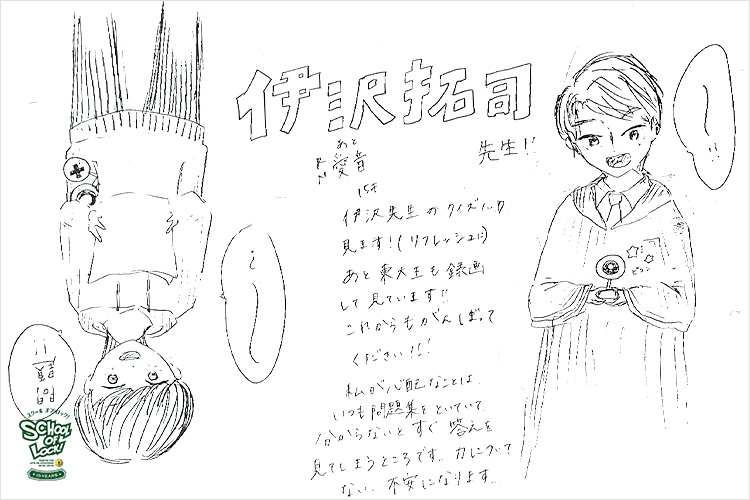 伊沢拓司
先生!!
あと
RN 愛音
15才
伊沢先生のクイズノック
見ます!(リフレッシュに)
あと東大王も録画
して見ています!!
これからもがんばって
ください!!!
私が心配なことは、
いつも問題集をといていて
分からないとすぐ答えを
見てしまうところです。力について
ない、不安になります…
ピコン
問題
スクール オブ ロック!
SCHOOL OF LOCK!
15 YEARS